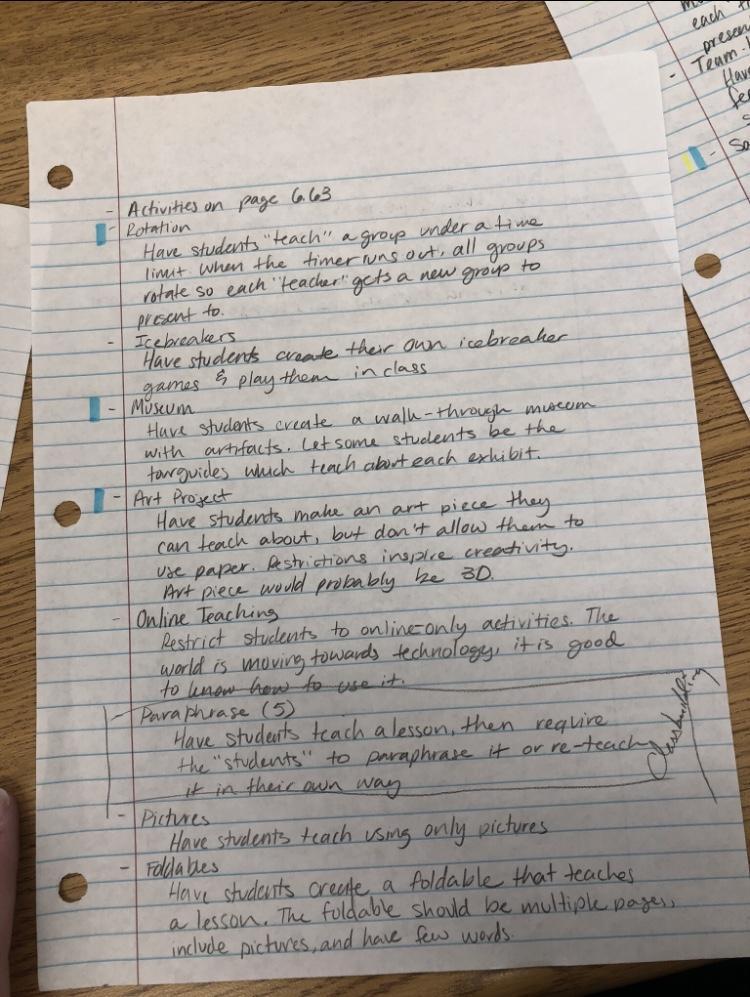 - Activities on page 6.63
- Rotation
Have students "teach" a group under a time
limit when the timer runs out, all groups
rotate so each "teacher" gets a new group to
present to.
- Icebreakers
Have students create their own icebreaker
games & play them in class
- Museum
Have students create a walk-through museum
with artifacts. Let some students be the
tourguides which teach about each exhibit.
- Art Project
Have students make an art piece they
can teach about, but don't allow them to
use paper. Restrictions inspire creativity.
Art piece would probably be 3D.
- Online Teaching
Restrict students to online-only activities. The
world is moving towards technology, it is good
to know how to use it.
- Paraphrase (5)
Have students teach a lesson, then require
the "students" to paraphrase it or re-teach
it in their own way
- Pictures
Have students teach using only pictures
- Foldables
Have students create a foldable that teaches
a lesson. The foldable should be multiple pages,
include pictures, and have few words.
each
presen
- Team-
Hav
- So